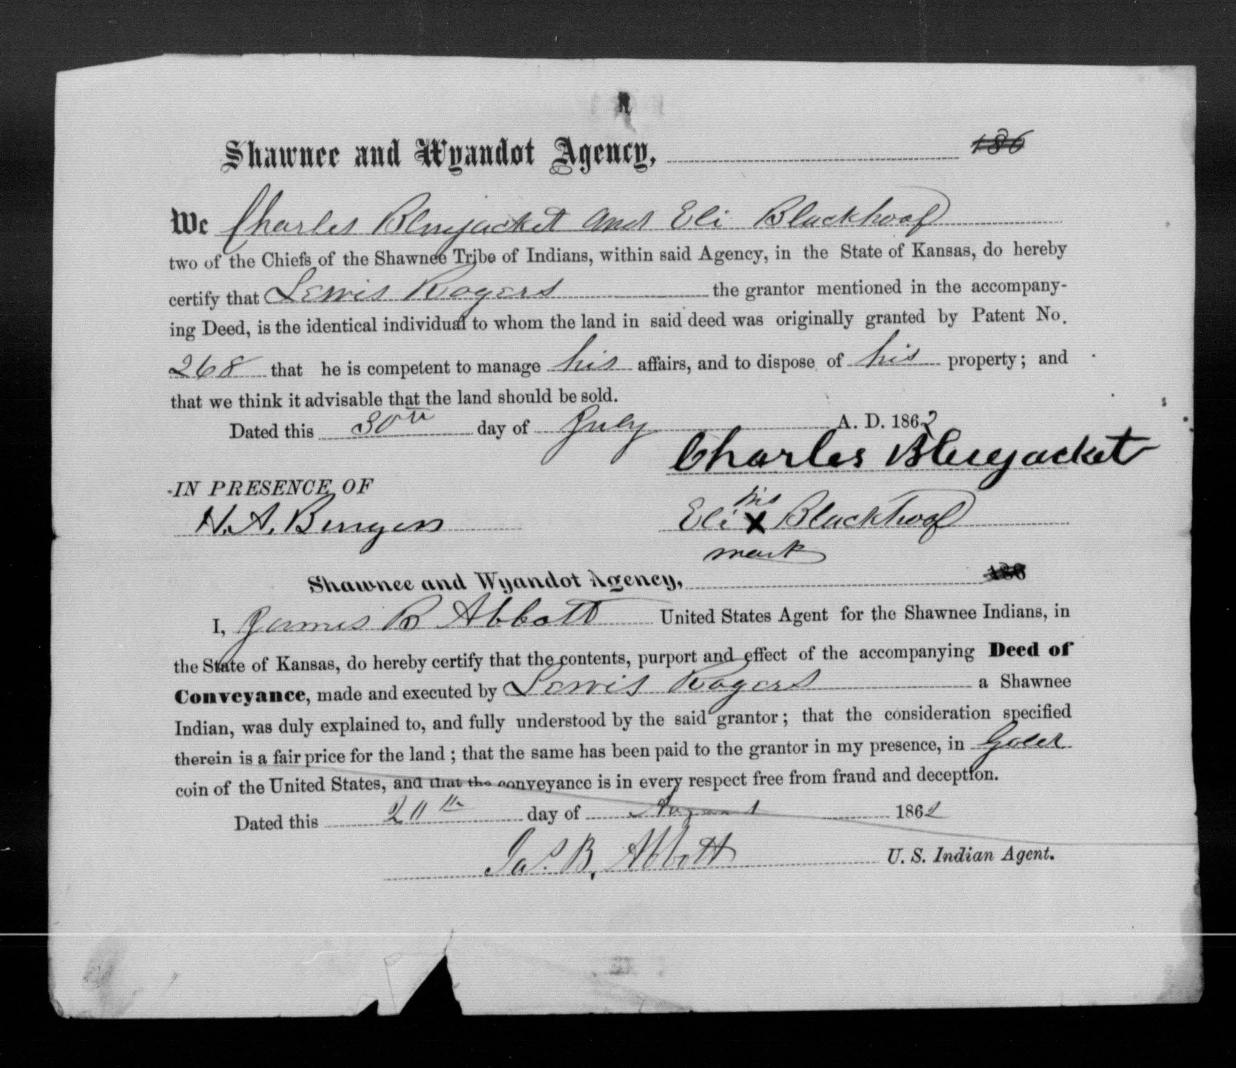 Shawnee and Wyandot Agency, 186
We Charles Bluejacket and Eli Blackhoof
two of the Chiefs of the Shawnee Tribe of Indians, within said Agency, in the State of Kansas, do hereby
certify that Lewis Rogers the grantor mentioned in the accompany-
ing Deed, is the identical individual to whom the land in said deed was originally granted by Patent No.
268 that he is competent to manage his affairs, and to dispose of his property; and
that we think it advisable that the land should be sold.
Dated this 30th day of July A. D. 1862
Charles Bluejacket
IN PRESENCE OF
his
H. A. Eli X Blackhoof
mark
Shawnee and Wyandot Agency, 186
I, James B Abbott United States Agent for the Shawnee Indians, in
the State of Kansas, do hereby certify that the contents, purport and effect of the accompanying Deed of
Conveyance, made and executed by Lewis Rogers a Shawnee
Indian, was duly explained to, and fully understood by the said grantor; that the consideration specified
therein is a fair price for the land; that the same has been paid to the grantor in my presence, in Gold
coin of the United States, and that the conveyance is in every respect free from fraud and deception.
Dated this day of August 1862
Jas. B. Abbott U. S. Indian Agent.